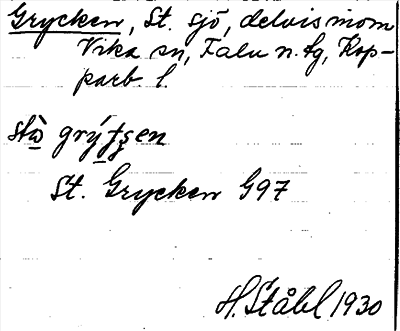 Grycken, St. sjö, delvis inom
Vika sn, Falu n. tg, Kop-
parb l.
stò grýtʂen
St. Grycken G97
H. Ståhl 1930